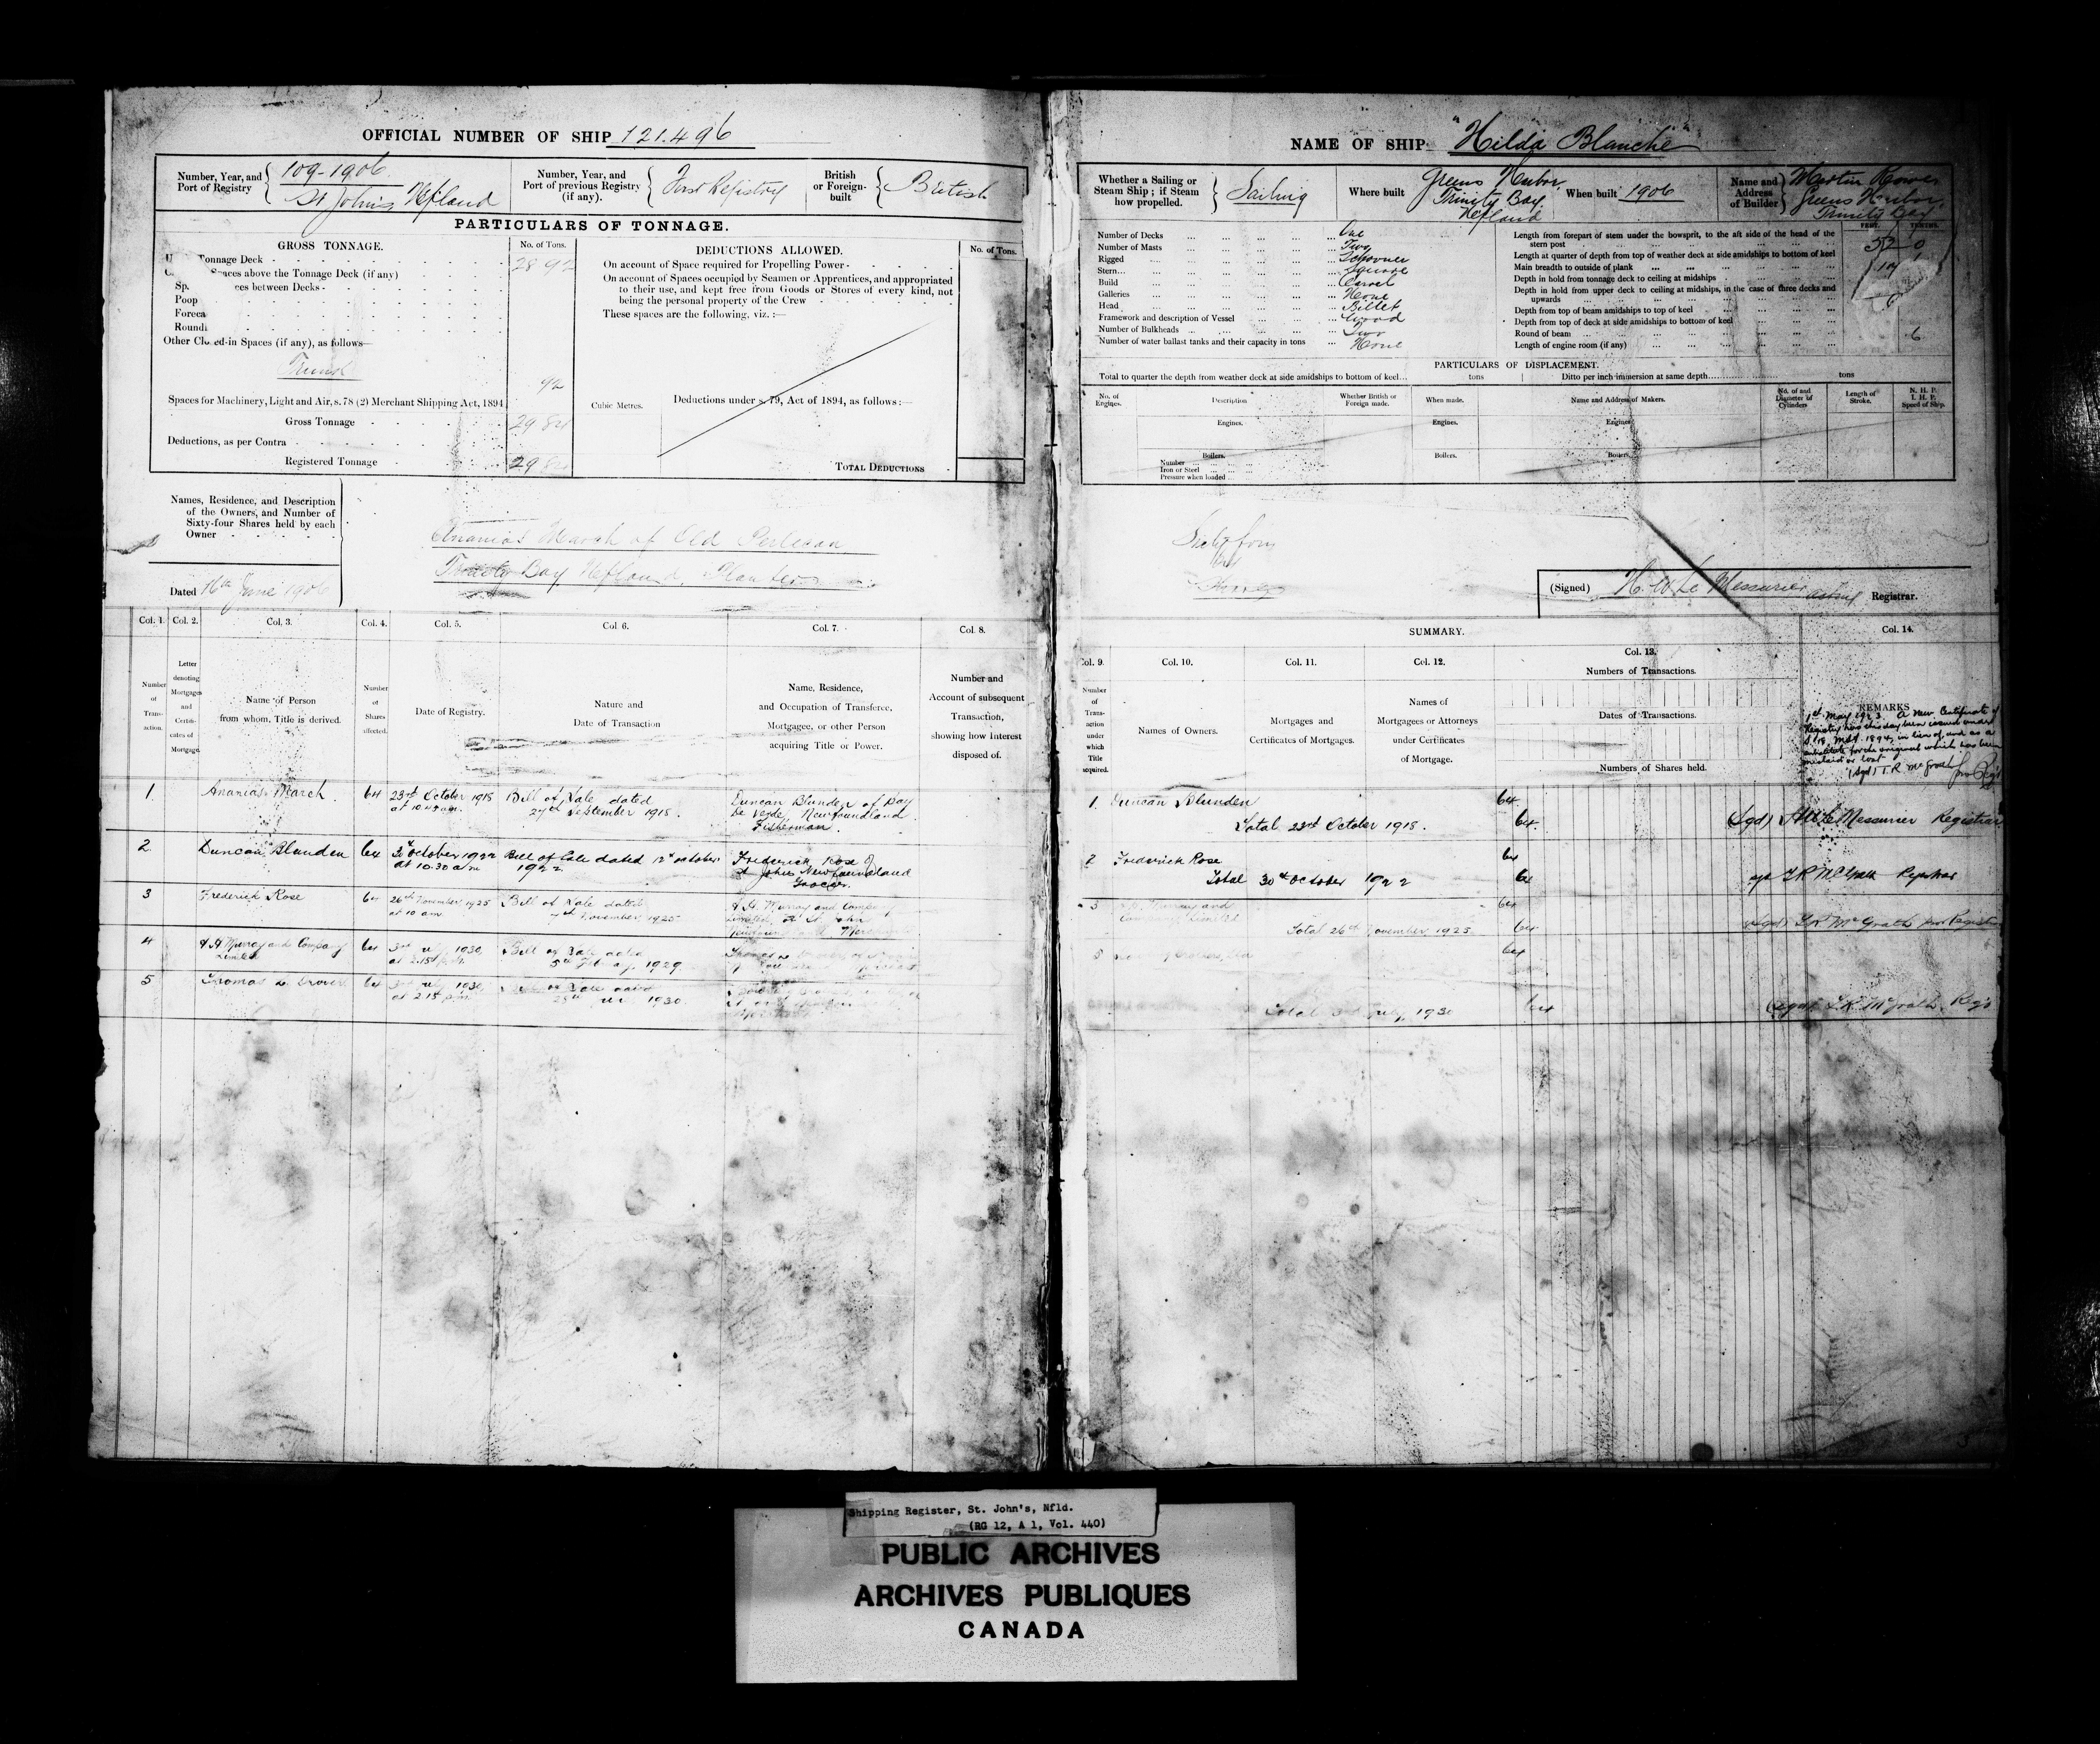 OFFICIAL NUMBER OF SHIP 121.496
Number, Year, and Port of Registry
109-1906
St John's Nfland
Number, Year, and Port of previous Registry (if any).
First Registry
British or Foreign-built
British
PARTICULARS OF TONNAGE.
GROSS TONNAGE.
No. of Tons.
Tonnage Deck
28 92
Spaces above the Tonnage Deck (if any)
ces between Decks
Poop
Foreca
Round
Other Closed-in Spaces (if any), as follows—
Trunk
92
Spaces for Machinery, Light and Air, s. 78 (2) Merchant Shipping Act, 1894
Gross Tonnage
29 84
Deductions, as per Contra
Registered Tonnage
29 84
DEDUCTIONS ALLOWED.
No. of Tons.
On account of Space required for Propelling Power
On account of Spaces occupied by Seamen or Apprentices, and appropriated
to their use, and kept free from Goods or Stores of every kind, not
being the personal property of the Crew
These spaces are the following, viz. :—
Cubic Metres.
Deductions under s. 79, Act of 1894, as follows :—
TOTAL DEDUCTIONS
Names, Residence, and Description
of the Owners, and Number of
Sixty-four Shares held by each
Owner
Ananias March of Old Perlican
Trinity Bay Nfland, Planter
Dated 16th June 1906
Col. 1. Col. 2. Col. 3. Col. 4. Col. 5. Col. 6. Col. 7. Col. 8.
Number of Transaction.
Letter denoting Mortgages and Certificates of Mortgage.
Name of Person from whom Title is derived.
Number of Shares affected.
Date of Registry.
Nature and Date of Transaction
Name, Residence, and Occupation of Transferee, Mortgagee, or other Person acquiring Title or Power.
Number and Account of subsequent Transaction, showing how Interest disposed of.
1 Ananias March 64 23rd October 1918 Bill of Sale dated Duncan Blunden of Bay
at 10 am. 27th September 1918. De Verde, Newfoundland
Fisherman.
2 Duncan Blunden 64 30th October 1922 Bill of Sale dated 12th October Frederick Rose of
at 10.30 am 1922 St Johns Newfoundland
Grocer.
3 Frederick Rose 64 26th November 1925 Bill of Sale dated A H. Murray and Company
at 10 am. November, 1925 Limited, St. John
4 A H Murray and Company 64 3rd July 1930 Bill of Sale dated
Limited at 2.15 p.m. 1929
5 Thomas 64 3rd July 1930 Bill of Sale dated
at 2.15 p.m. 1930
NAME OF SHIP "Hilda Blanche"
Whether a Sailing or Steam Ship; if Steam how propelled.
Sailing
Where built
Greens Harbor
Trinity Bay.
Nfland
When built 1906
Name and Address of Builder
Martin
Greens Harbor,
Trinity Bay
Number of Decks ... One
Number of Masts ... Two
Rigged ... Schooner
Stern... Square
Build ... Carvel
Galleries ... None
Head ... Billet
Framework and description of Vessel ... Wood
Number of Bulkheads ... Two
Number of water ballast tanks and their capacity in tons ... None
FEET. TENTHS.
Length from forepart of stem under the bowsprit, to the aft side of the head of the
stern post 52 0
Length at quarter of depth from top of weather deck at side amidships to bottom of keel
Main breadth to outside of plank 17
Depth in hold from tonnage deck to ceiling at midships
Depth in hold from upper deck to ceiling at midships, in the case of three decks and
upwards
Depth from top of beam amidships to top of keel
Depth from top of deck at side amidships to bottom of keel
Round of beam 6
Length of engine room (if any)
PARTICULARS OF DISPLACEMENT.
Total to quarter the depth from weather deck at side amidships to bottom of keel... tons Ditto per inch immersion at same depth... tons
No. of Engines. Description Whether British or Foreign made. When made. Name and Address of Makers. No. of and Diameter of Cylinders Length of Stroke. N. H. P. I. H. P. Speed of Ship.
Engines. Engines. Engines
Boilers. Boilers. Boilers.
Number
Iron or Steel
Pressure when loaded
Sixty four
(Signed) H. W. Le Messurier Registrar.
SUMMARY.
Col. 9. Col. 10. Col. 11. Col. 12. Col. 13. Col. 14.
Number of Transaction under which Title acquired.
Names of Owners.
Mortgages and Certificates of Mortgages.
Names of Mortgagees or Attorneys under Certificates of Mortgage.
Numbers of Transactions.
Dates of Transactions.
Numbers of Shares held.
REMARKS
1st May 1923. A new Certificate of
Registry has this day been issued under
S. 18 MSA 1894, in lieu of and as a
substitute for the original which has been
mislaid or lost
(Sgd) T.R McGrath
1. Duncan Blunden 64
Total 23rd October 1918. 64 (Sgd) H W Le Messurier Registrar
2 Frederick Rose 64
Total 30th October 1922 64 T.R McGrath Registrar
3 A.H. Murray and 64
Company Limited
Total 26th November 1925 64 (Sgd) T.R. McGrath Registrar
5 64
Total 3rd July, 1930 64 (Sgd) T.R. McGrath Reg's
Shipping Register, St. John's, Nfld.
(RG 12, A 1, Vol. 440)
PUBLIC ARCHIVES
ARCHIVES PUBLIQUES
CANADA